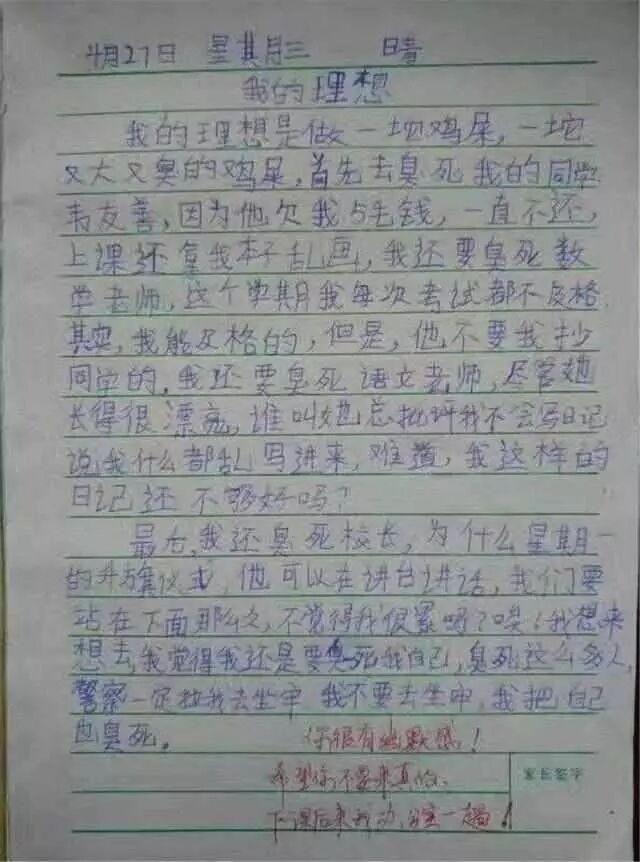 4月27日 星期三 晴
我的理想
我的理想是做一坨鸡屎,一坨
又大又臭的鸡屎,首先去臭死我的同学
韦友善,因为他欠我5毛钱,一直不还,
上课还拿我本子乱画,我还要臭死数
学老师,这个学期我每次考试都不及格
其实,我能及格的,但是,他不要我抄
同学的,我还要臭死语文老师,尽管她
长得很漂亮,谁叫她总批评我不会写日记
说我什么都乱写进来,难道,我这样的
日记还不够好吗?
最后,我还臭死校长,为什么星期一
的升旗仪式,他可以在讲台讲话,我们要
站在下面那么久,不觉得我很累吗?唉!我想来
想去,我觉得我还是要臭死我自己,臭死这么多人,
警察一定拉我去坐牢,我不要去坐牢,我把自己
也臭死。 你很有幽默感!
希望你不要来真的、 家长签字
下课后来我办公室一趟!